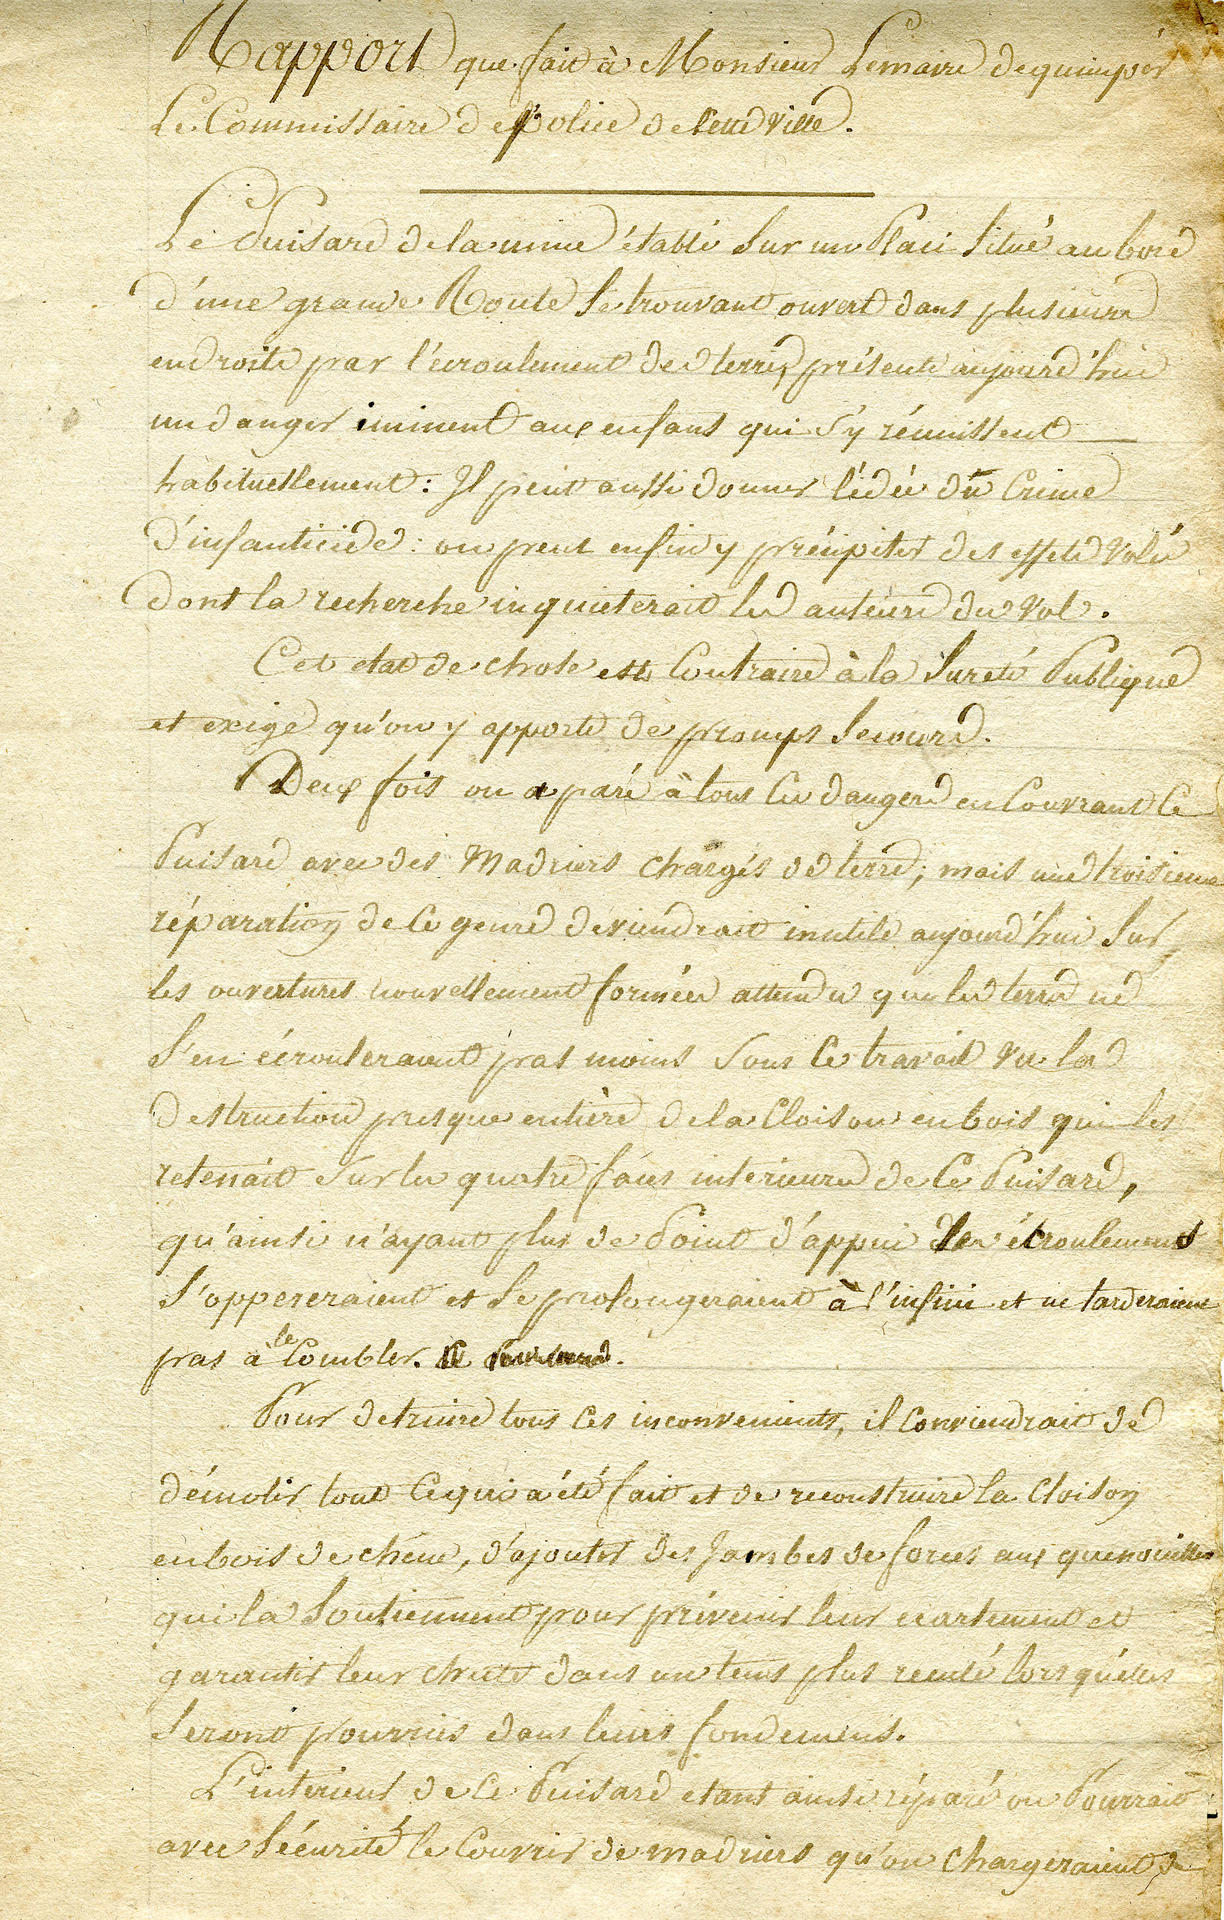 Rapport que fait à Monsieur Lemaire de quimper
Le Commissaire de police de Cette ville.
Le Puisard de la mine établi Sur un Placi Situé au bord
d'une grande Route Se trouvant ouvert dans plusieurs
endroits par l'écroulement des terres, présente aujourd'hui
un danger iminent aux enfans qui s'y réunissent
habituellement : Il peut aussi donner l'idée du Crime
d'infanticide : on peut enfin y précipiter des effets Volés
dont la recherche inquieterait les auteurs du Vol.
Cet etat de chose est Contraire à la Sureté Publique
et exige qu'on y apporte de promps Secours.
Deux fois on a paré à tous Ces dangers en Couvrant Ce
Puisard avec des Madriers chargés de terre ; mais une troisieme
réparation de Ce genre deviendrait inutile aujourd'hui Sur
les ouvertures nouvellement formées attendu que les terres ne
S'en écrouleraient pas moins Sous Ce travail Vu la
destruction presque entière de la Cloison en bois qui les
retenait Sur les quatre faces interieures de Ce Puisard,
qu'ainsi n'ayant plus de Point d'appui les écroulemens
S'oppereraient et Se prolongeraient à l'infini et ne tarderaient
pas à le Combler.
Pour detruire tous Ces inconvenients, il Conviendrait de
démolir tout Ce qui a été fait et de reconstruire la Cloison
en bois de chéne, d'ajouter des Jambes de forces aux quenouilles
qui la Soutiennent pour prévenir leur ecartement et
garantir leur chute dans un tems plus reculé lorsqu'elles
Seront pourries dans leurs fondemens.
L'interieur de Ce Puisard etant ainsi réparé on Pourrait
avec Sécurité le Couvrir de madriers qu'on chargeraient de